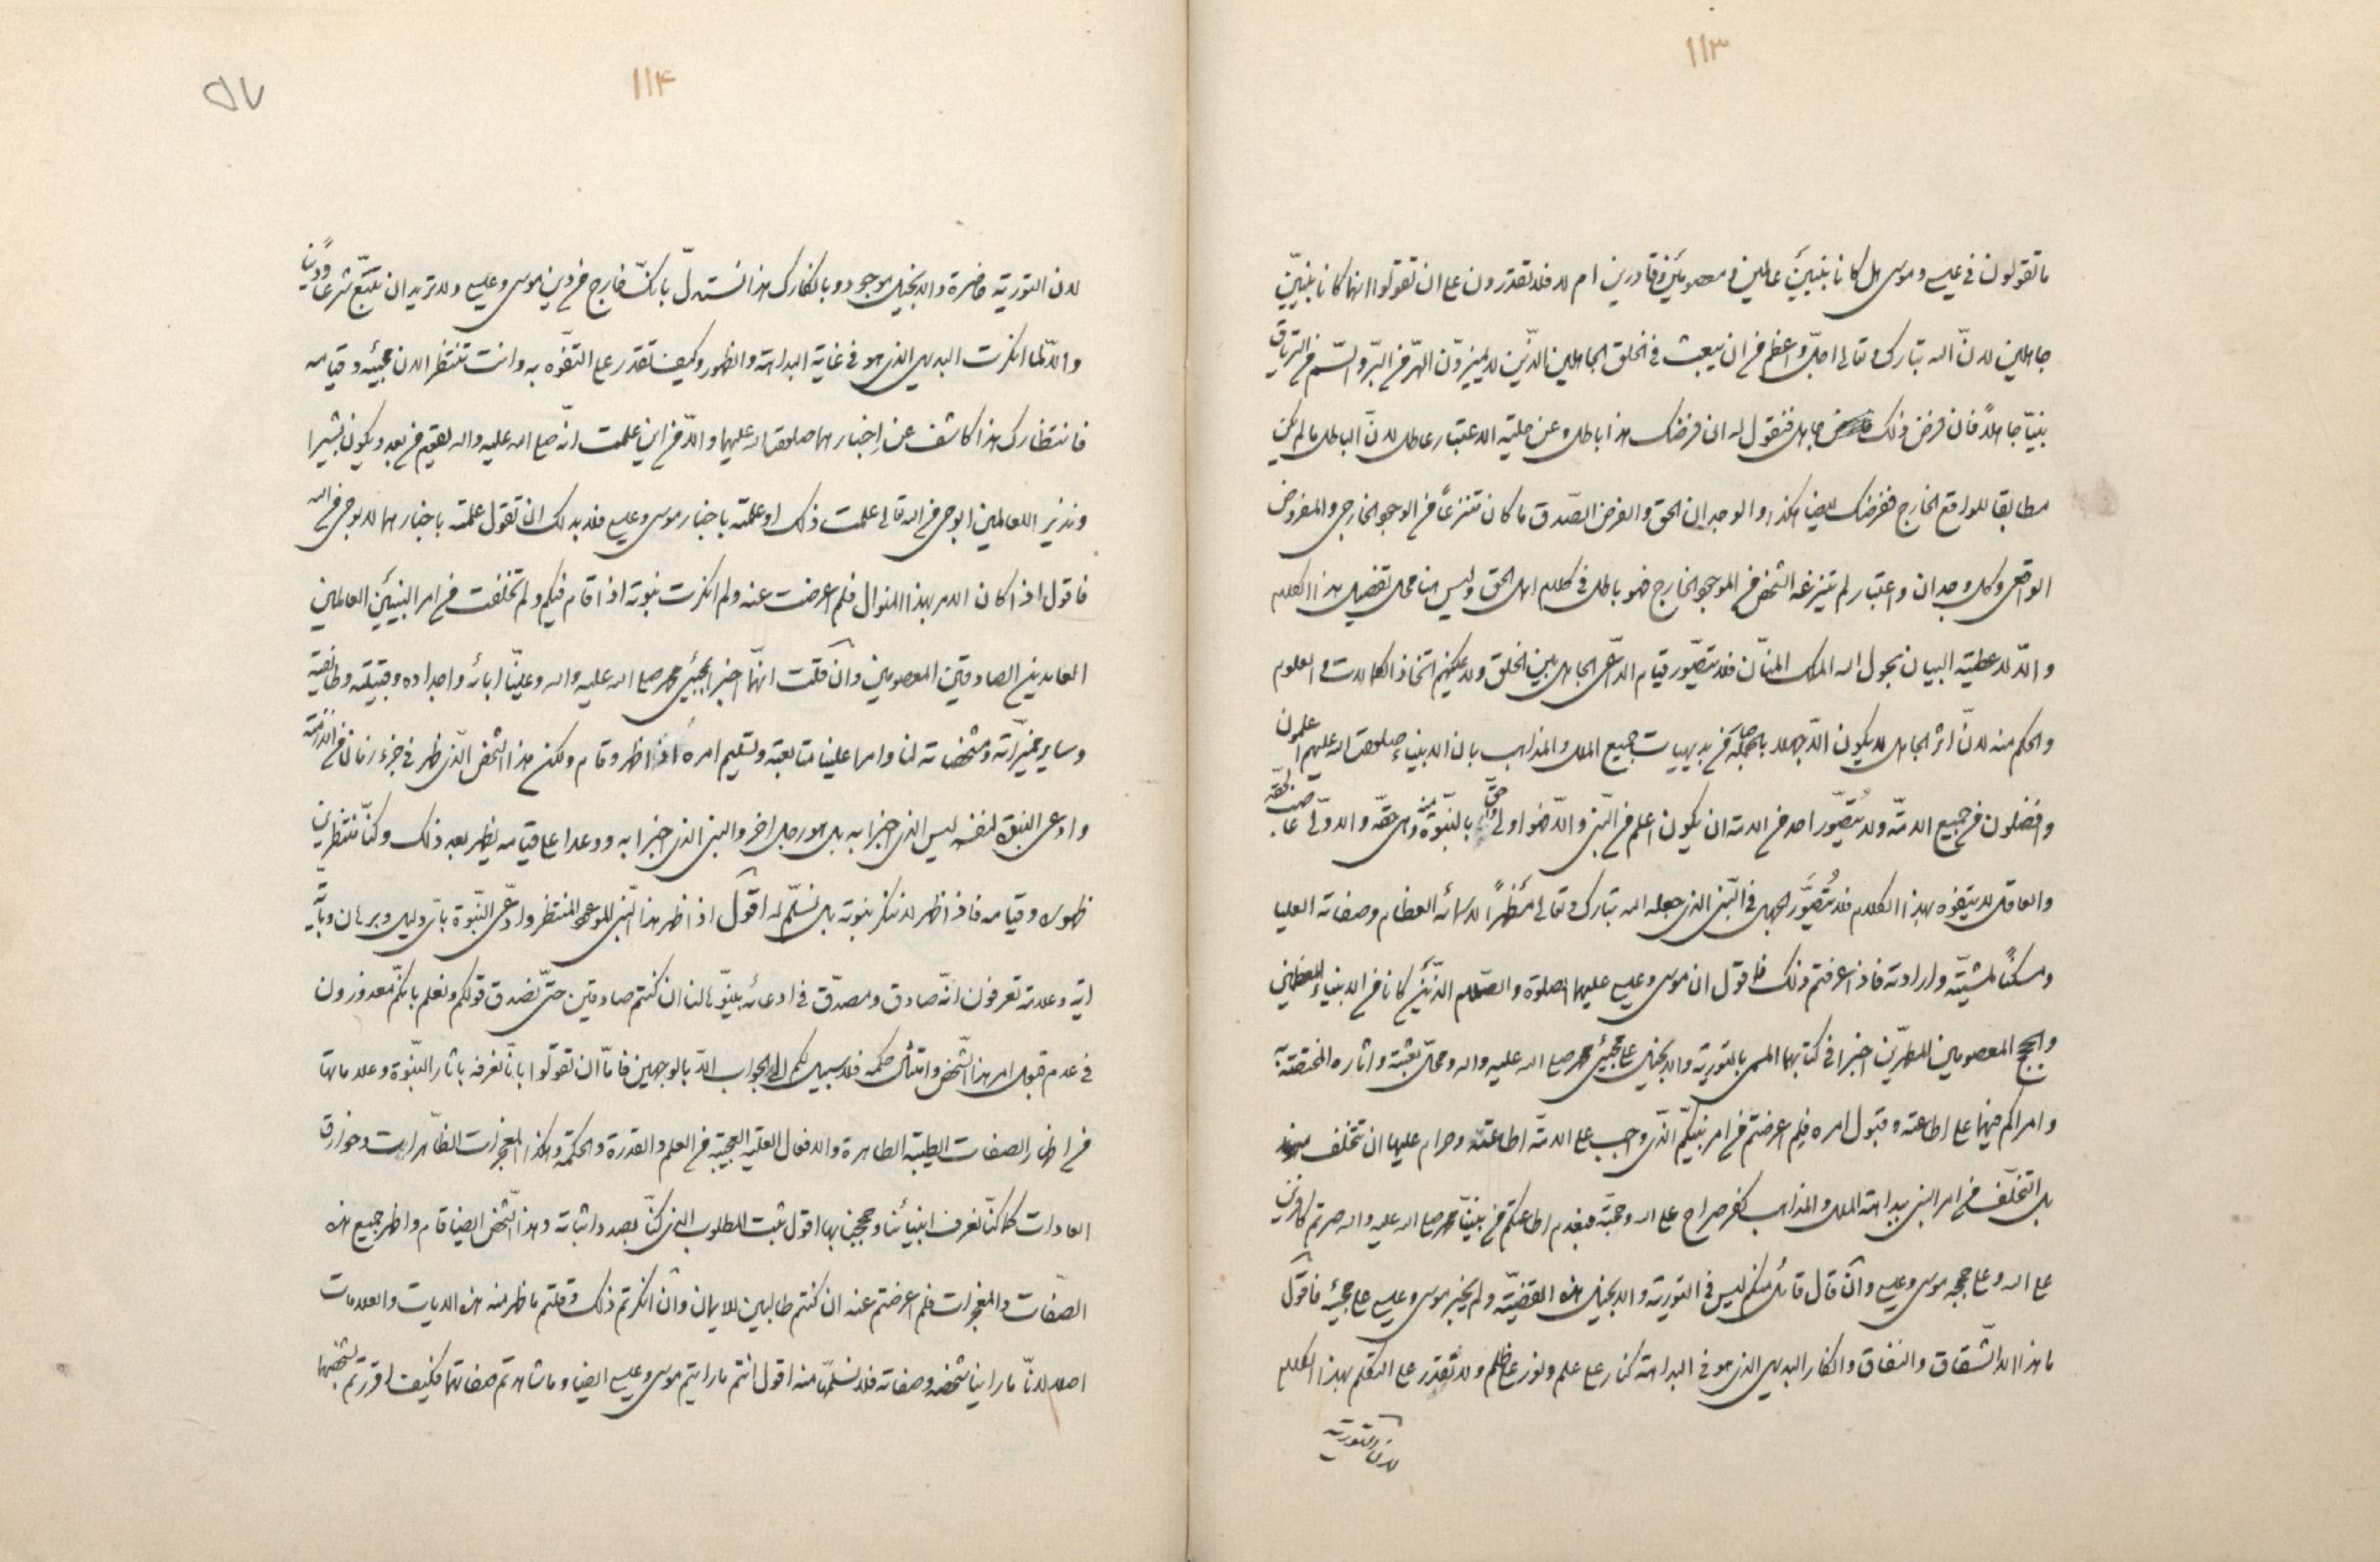 ١١٣
ما تقولون في عيسى وموسى هل كانا نبيين عالمين ومعصومين وقادرين ام لا فلا تقدرون على ان تقولوا انهما كانا نبيين
جاهلين لانّ الله تبارك وتعالى اجلّ واعظم من ان يبعث في الخلق الجاهلين الذين لا يميزون الهرّ من البرّ والسّم من الترياق
نبيّا جاهلاً فان فرض ذلك جاهل فنقول له ان فرضك هذا باطل وعن حلية الاعتبار عاطل لانّ الباطل ما لم يكن
مطابقا للواقع الخارج ففرضك ايضا هكذا والوجدان الحق والفرض الصّدق ما كان منتزعاً من الوجود الخارجي والمفروض
الواقعي وكل وجدان واعتبار لم ينتزعه الشخص من الموجود الخارج فهو باطل في كلام اهل الحق وليس هنا محل تفصيل هذا الكلام
والّا لاعطيته البيان بحول الله الملك المنّان فلا يتصوّر قيام الدّاعي الجاهل بين الخلق ولا يمكنهم اتخاذ الكمالات والعلوم
والحكم منه لانّ اثر الجاهل لا يكون الّا جهلا بل من بديهيات جميع الملل والمذاهب بان الانبياء صلوات الله عليهم اعلمون
وافضلون من جميع الامّة ولا يُتصوّر احد من الامة ان يكون اعلم من النّبي والّا فهو اولى بالنبوّة منه وهي حقّه والاولى
والعاقل لا يتفوه بهذا الكلام فلا يُتصوَّر الجهل في النّبي الذي جعله الله تبارك وتعالى مظهراً لاسمائه العظام وصفاته العليا
ومسكناً لمشيّته وارادته فاذا عرفتم ذلك فاقول ان موسى وعيسى عليهما الصلوة والسّلام الذَين كانا من الانبياء العظمين
والحجج المعصومين المطهّرين اخبرا في كتابهما المسمى بالتورية والانجيل على مجيئ محمد صلى الله عليه واله ومحل بعثته واثاره المختصّة به
وامراكم فيهما على اطاعته وقبول امره فلم اعرضتم من امر نبيّكم الّذي وجب على الامّة اطاعته وحرام عليها ان تخلف منه
بل التخلّف من امر النبي ببداهة الملل والمذاهب كفر صراح على الله وحجّته فبعدم اطاعتكم من نبيّنا محمد صلى الله عليه واله صرتم كافرين
على الله وعلى حججه موسى وعيسى وان قال قائل منكم ليس في التورية والانجيل هذه القضيّة ولم يخبر موسى وعيسى على مجيئه فاقول
ما هذا الا الشقاق والنفاق وانكار البديهي الذي هو في البداهة كنار على علم ونور على ظلم ولا تقدر على التكلم بهذا الكلام
لان التورية
١١٤
٥٧
لان التورية حاضرة والانجيل موجود وبانكارك هذا نستدلّ بانكّ خارج من دين موسى وعيسى ولا تريد ان تتبّع شرعاً وديناً
والّا لما انكرت البديهي الذي هو في غاية البداهة والظهور وكيف تقدر على التفوّه به وانت تنتظر الان مجيئه وقيامه
فانتظارك هذا كاشف عن إخبارهما صلوات الله عليهما والّا من اين علمت انّه صلى الله عليه واله يقوم من بعد ويكون بشيرا
ونذيرا للعالمين ابوحي من الله تعالى علمت ذلك او علمته باخبار موسى وعيسى فلا بد لك ان تقول علمته باخبارهما لا بوحي من الله
فاقول اذا كان الامر بهذا المنوال فلم اعرضت عنه ولم انكرت نبوته اذا قام فيكم ولم تخلفت من امر النبيّين العالمين
العابدين الصادقين المعصومين وان قلت انهّما اخبرا بمجيئ محمد صلى الله عليه واله وعيّنا ابائه واجداده وقبيلته وطائفته
وساير مميّزاته ومشخصاته لنا وامرا علينا متابعته وتسليم امره اذا ظهر وقام ولكن هذا الشخص الّذي ظهر في جزء زمان من الازمنة
وادعى النبوّة لنفسه ليس الذي اخبرا به بل هو رجل اخر والنبي الذي اخبرا به ووعدا على قيامه يظهر بعد ذلك وكنّا منتظرين
ظهوره وقيامه فاذا ظهر لا ننكر نبوته بل نسلّم له اقول اذا ظهر هذا النّبي الموعود المنتظر وادّعى النّبوّة باىّ دليل وبرهان وبايّة
اية وعلامة تعرفون انّه صادق ومصدّق في ادعائه بيّنوا لنا ان كنتم صادقين حتّى نصدق قولكم ونعلم بانكّم معذورون
في عدم قبول امر هذا الشّخص وامتثال حكمه فلا سبيل لكم الى الجواب الّا بالوجهين فامّا ان تقولوا بانّا نعرفه باثار النّبوّة وعلاماتها
من اظهار الصفات الطيبّة الطاهرة والافعال العليّة العجيبّة من العلم والقدرة والحكمة وهكذا المعجزات الظّاهرات وخوارق
العادات كما كنّا نعرف انبيائنا وحججنا بها اقول ثبت المطلوب الذي كنّا بصدد اثباته وهذا الشّخص ايضا قام واظهر جميع هذه
الصّفات والمعجزات فلم اعرضتم عنه ان كنتم طالبين للايمان وان انكرتم ذلك وقلتم ما ظهر منه هذه الايات والعلامات
اصلا لانّا ما راينا شخصه وصفاته فلا نسلمّها منه اقول انتم ما رايتم موسى وعيسى ايضا وما شاهدتم صفاتهما فكيف اقررتم بشخصهما